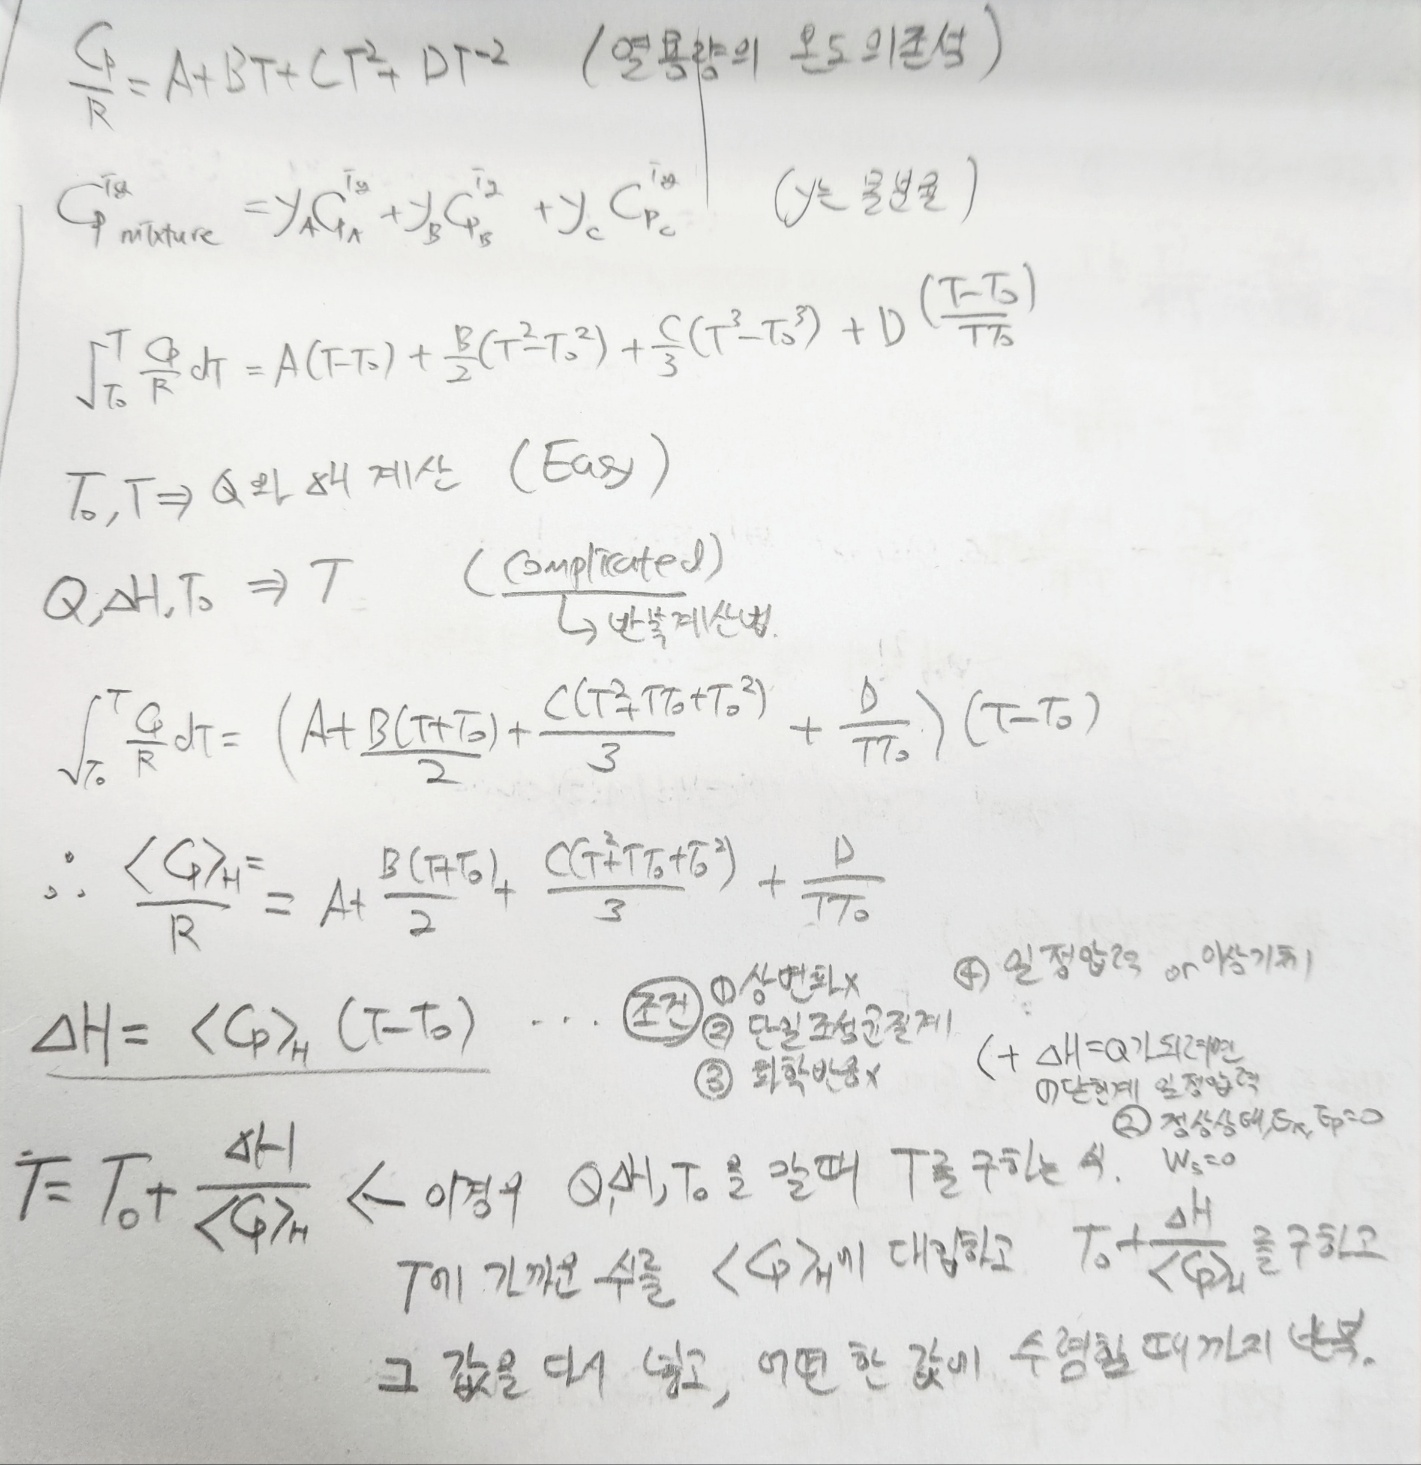 Cp/R = A+BT+CT²+DT⁻² (열용량의 온도의존성)
Cp^ig mixture = y_A Cp_A^ig + y_B Cp_B^ig + y_C Cp_C^ig (y는 몰분율)
∫_T₀^T Cp/R dT = A(T-T₀) + B/2(T²-T₀²) + C/3(T³-T₀³) + D (T-T₀)/TT₀
T₀, T ⇒ Q와 ΔH 계산 (Easy)
Q, ΔH, T₀ ⇒ T (complicated)
↳ 반복계산법.
∫_T₀^T Cp/R dT = (A + B(T+T₀)/2 + C(T²+TT₀+T₀²)/3 + D/TT₀) (T-T₀)
∴ <Cp>_H/R = = A + B(T+T₀)/2 + C(T²+TT₀+T₀²)/3 + D/TT₀
ΔH = <Cp>_H (T-T₀) ... 조건 ① 상변화x
② 단일조성균질계
③ 화학반응x
④ 일정압력 or 이상기체
(+ ΔH=Q가 되려면
① 닫힌계 일정압력
② 정상상태, E_K, E_P=0
W_s=0
T = T₀ + ΔH/<Cp>_H ← 이경우 Q, ΔH, T₀을 알때 T를 구하는 식.
T에 가까운 수를 <Cp>_H에 대입하고 T₀ + ΔH/<Cp>_H 를 구하고
그 값을 다시 넣고, 어떤 한 값에 수렴할 때까지 반복.